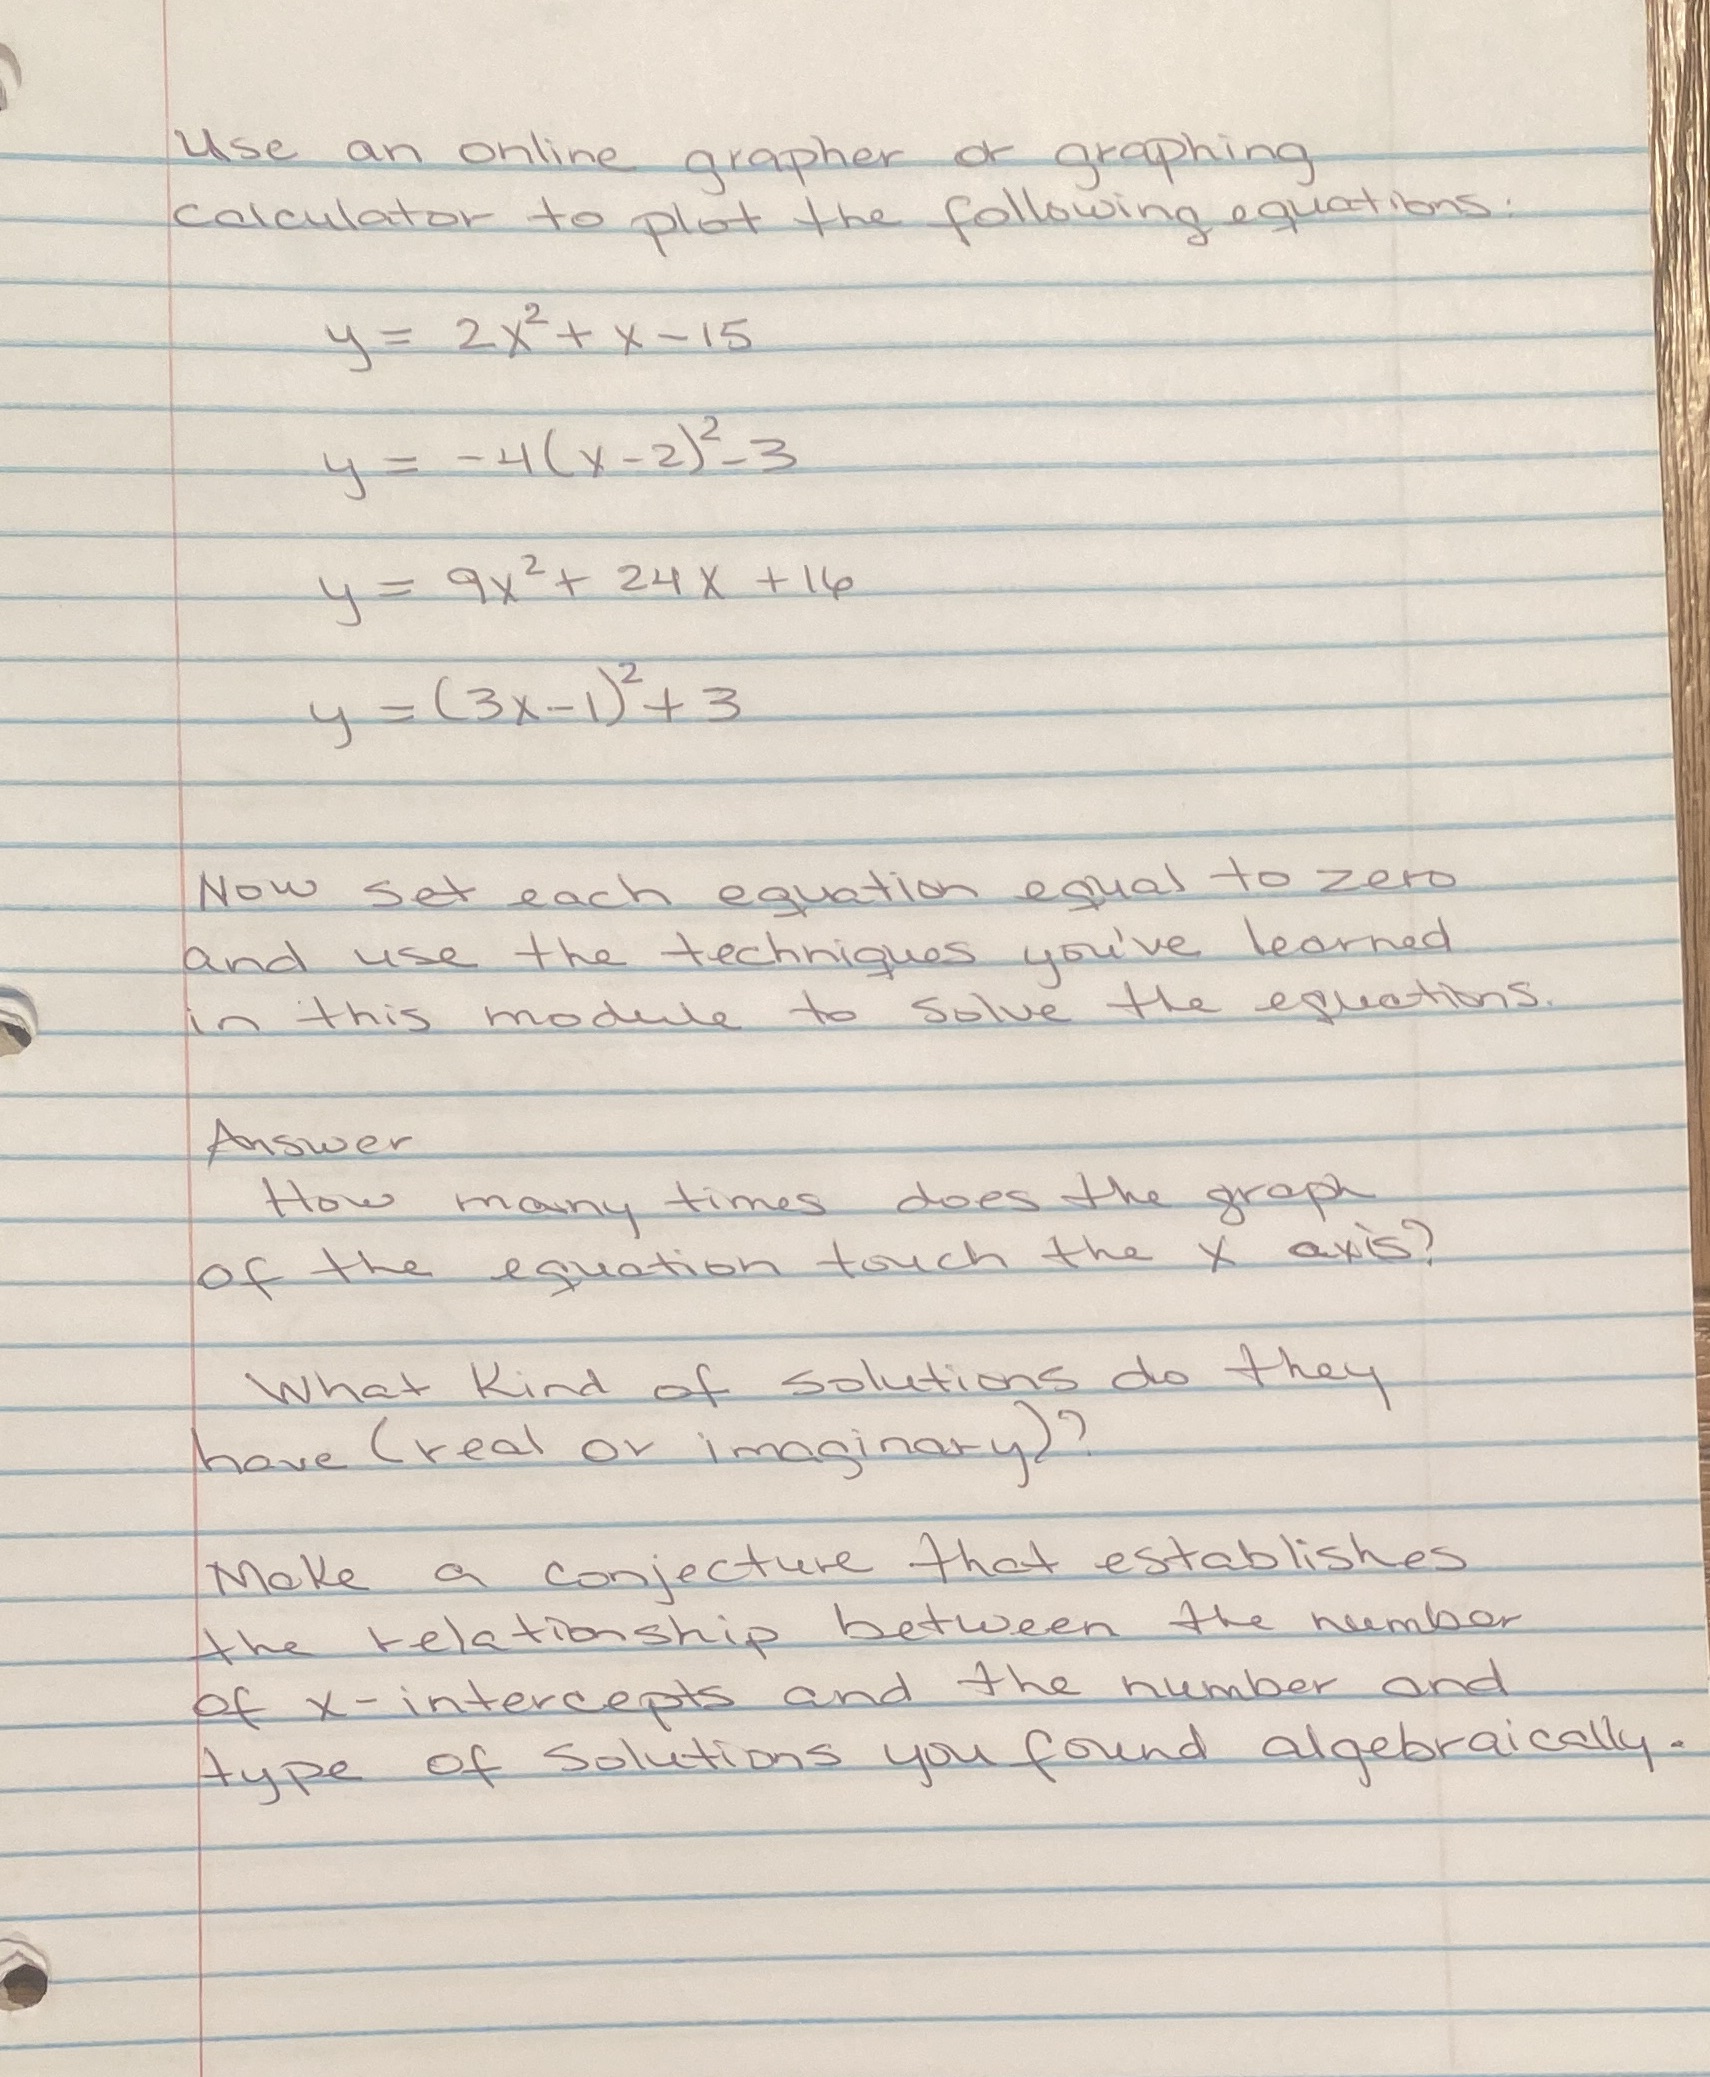 Use an online grapher or graphing
calculator to plot the following equations:
y = 2x² + x - 15
y = -4(x-2)² - 3
y = 9x² + 24x + 16
y = (3x-1)² + 3
Now set each equation equal to zero
and use the techniques you've learned
in this module to solve the equations.
Answer
How many times does the graph
of the equation touch the x axis?
What kind of solutions do they
have (real or imaginary)?
Make a conjecture that establishes
the relationship between the number
of x-intercepts and the number and
type of solutions you found algebraically.